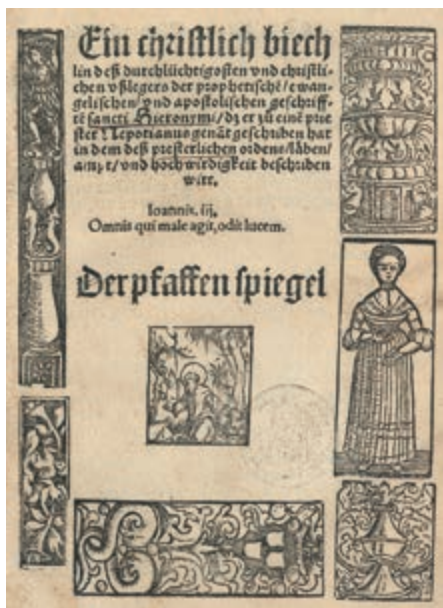 Ein christlich biech
lin deß durchlüchtigosten vnd christli-
chen vßlegers der prophetischē / ewan-
gelischen / vnd apostolischen geschriff-
tē sancti Hieronymi / dz er zů einē prie
ster Nepotianus genāt geschriben hat
in dem deß presterlichen ordens / låben /
ampt / vnd hochwirdigkeit beschriben
wirt.
Ioannis. iij.
Omnis qui male agit, odit lucem.
Der pfaffen spiegel